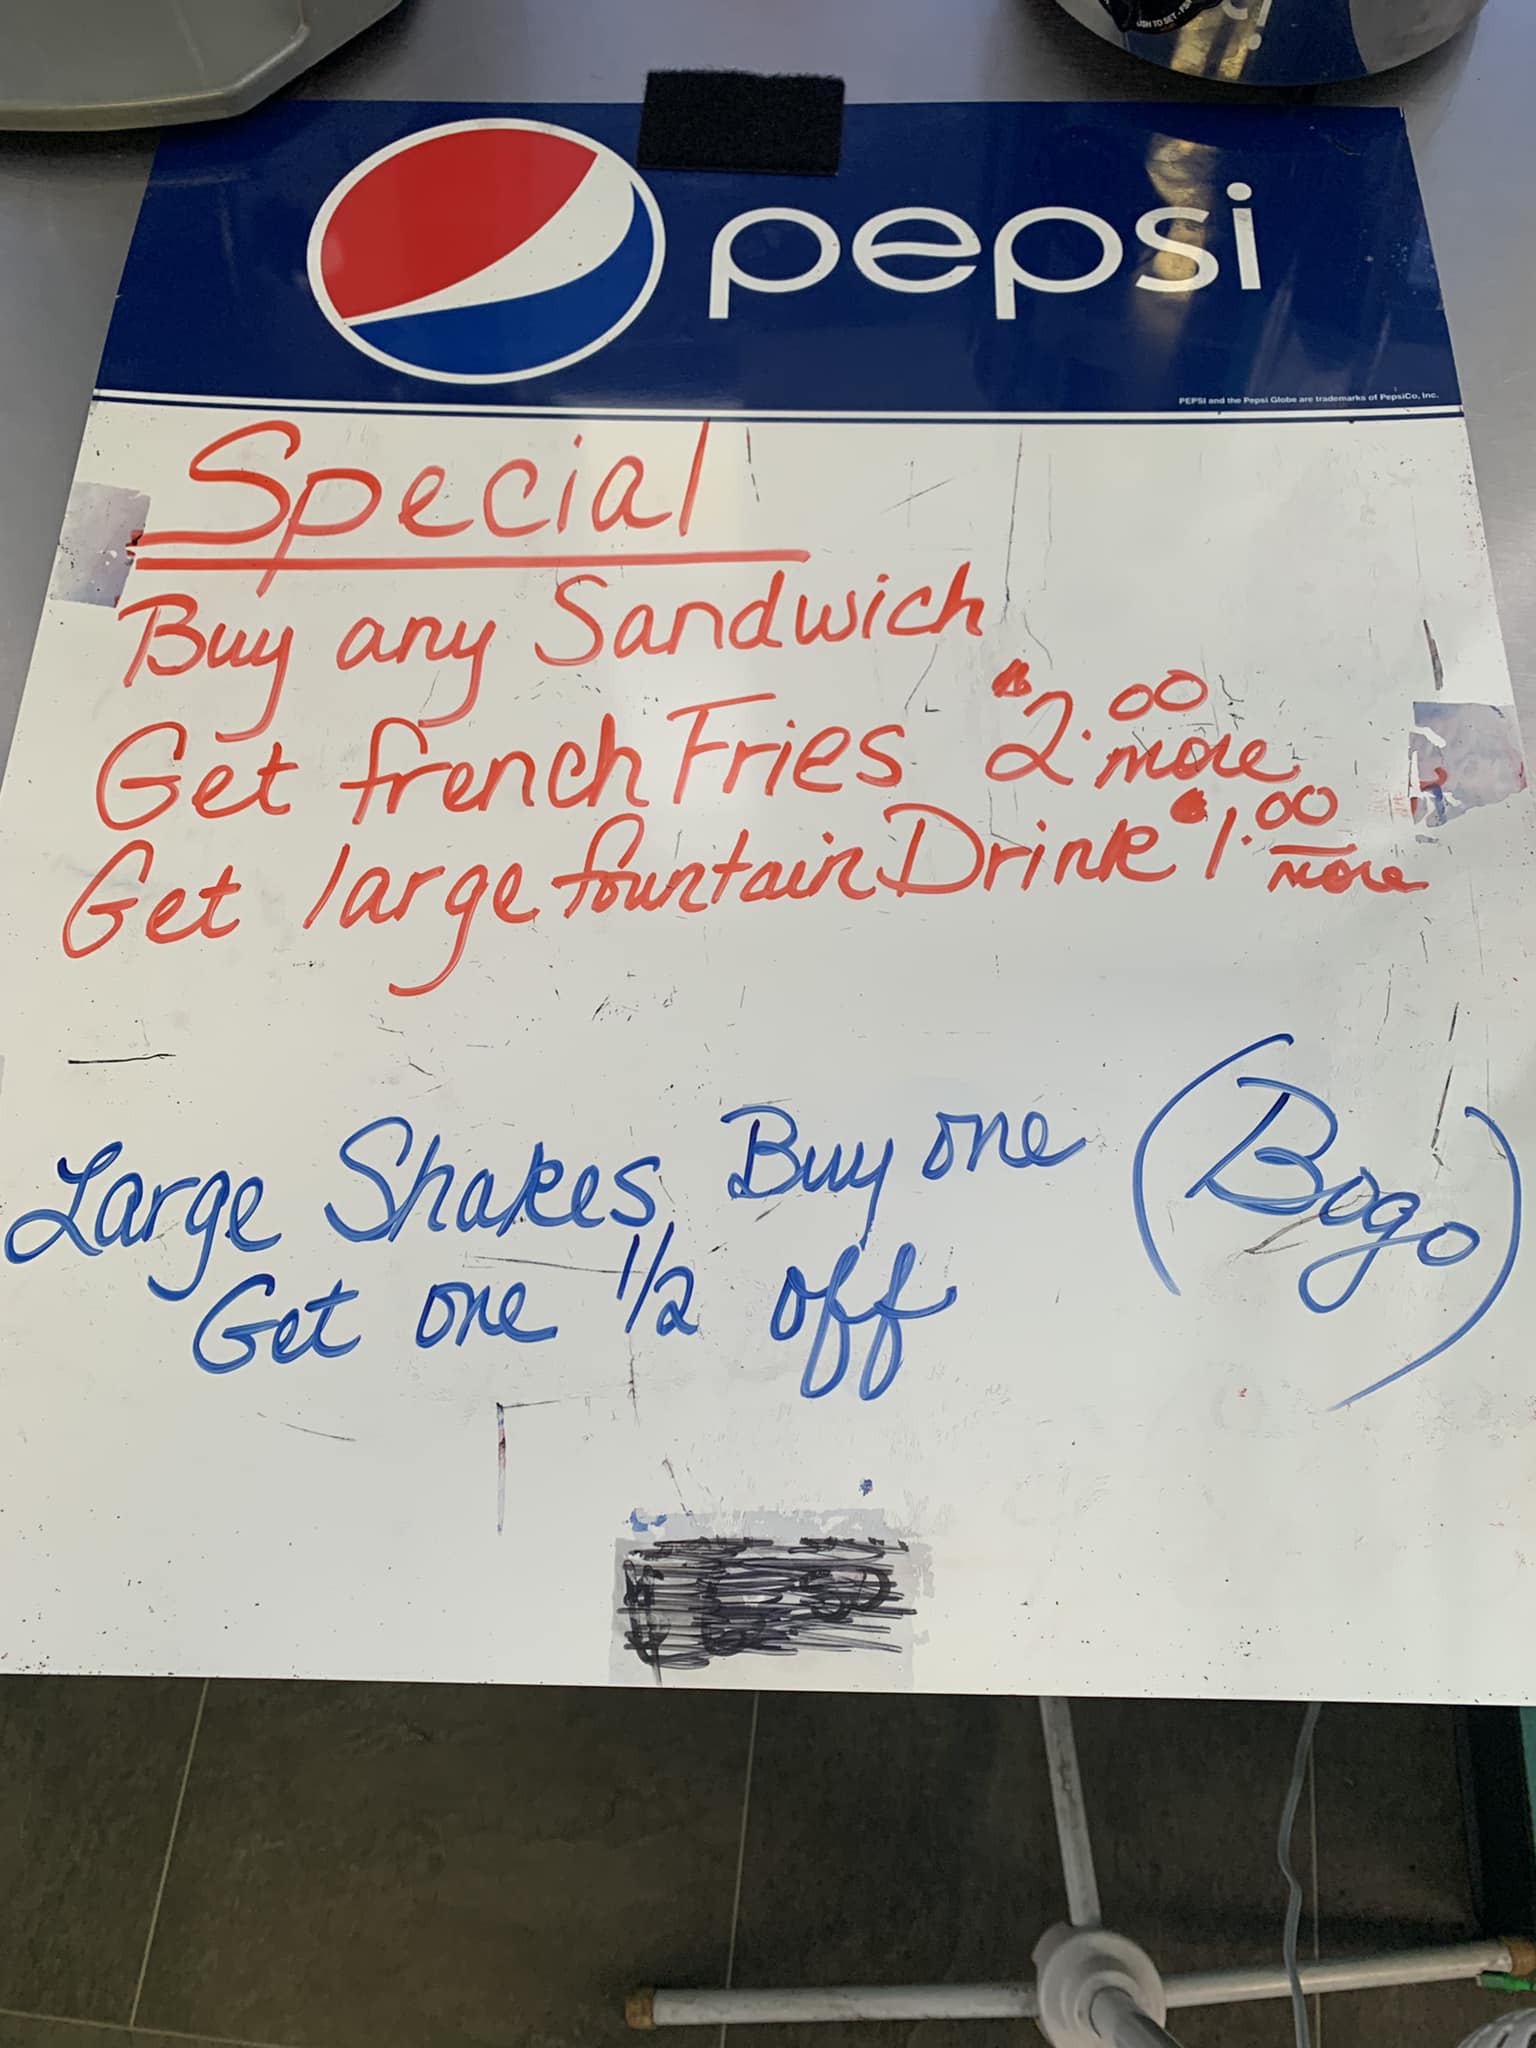 pepsi
PEPSI and the Pepsi Globe are trademarks of PepsiCo, Inc.
Special
Buy any Sandwich
Get french Fries $2.00 more
Get large fountain Drink $1.00 more
Large Shakes, Buy one (Bogo)
Get one 1/2 off